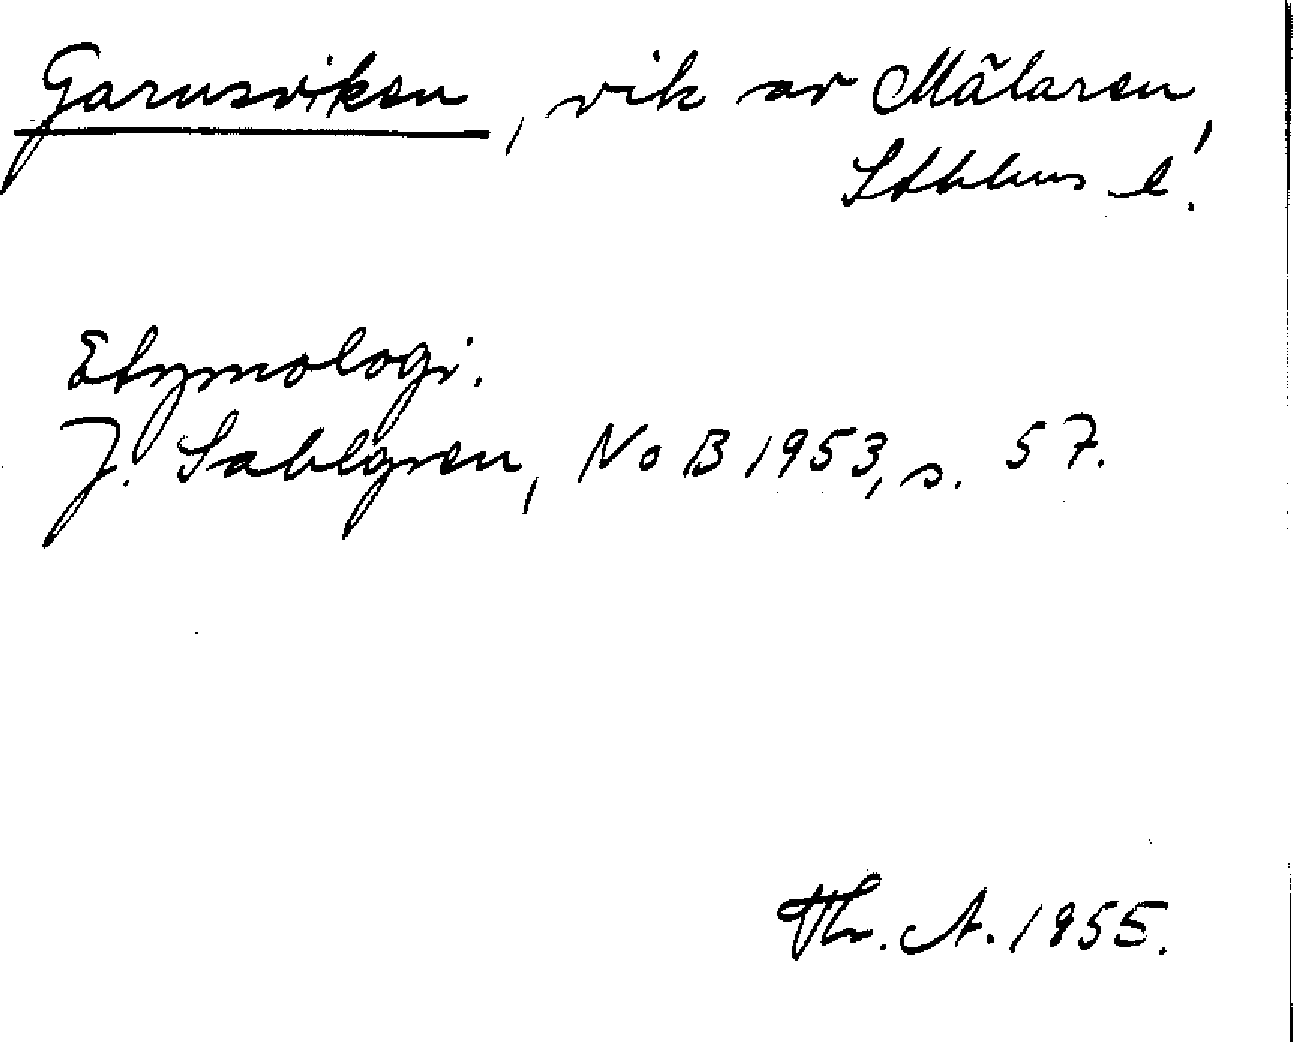 Garnsviken, vik av Mälaren,
Sthlms l.
Etymologi.
J. Sahlgren, NoB 1953, s. 57.
Th. A. 1955.